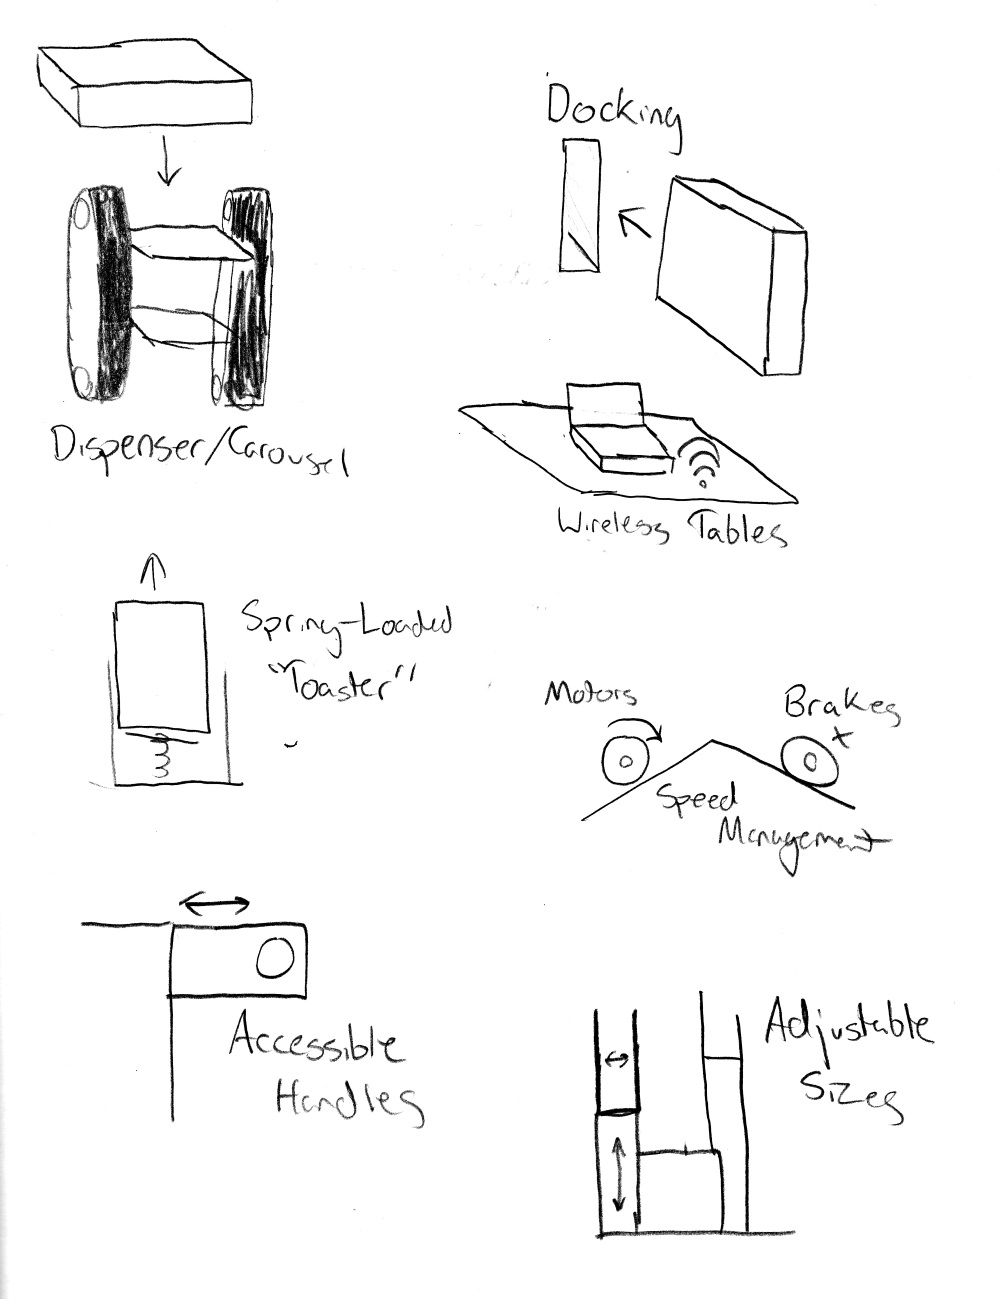 Docking
Dispenser/Carousel
Wireless Tables
Spring-Loaded
"Toaster"
Motors
Brakes
Speed
Management
Accessible
Handles
Adjustable
Sizes